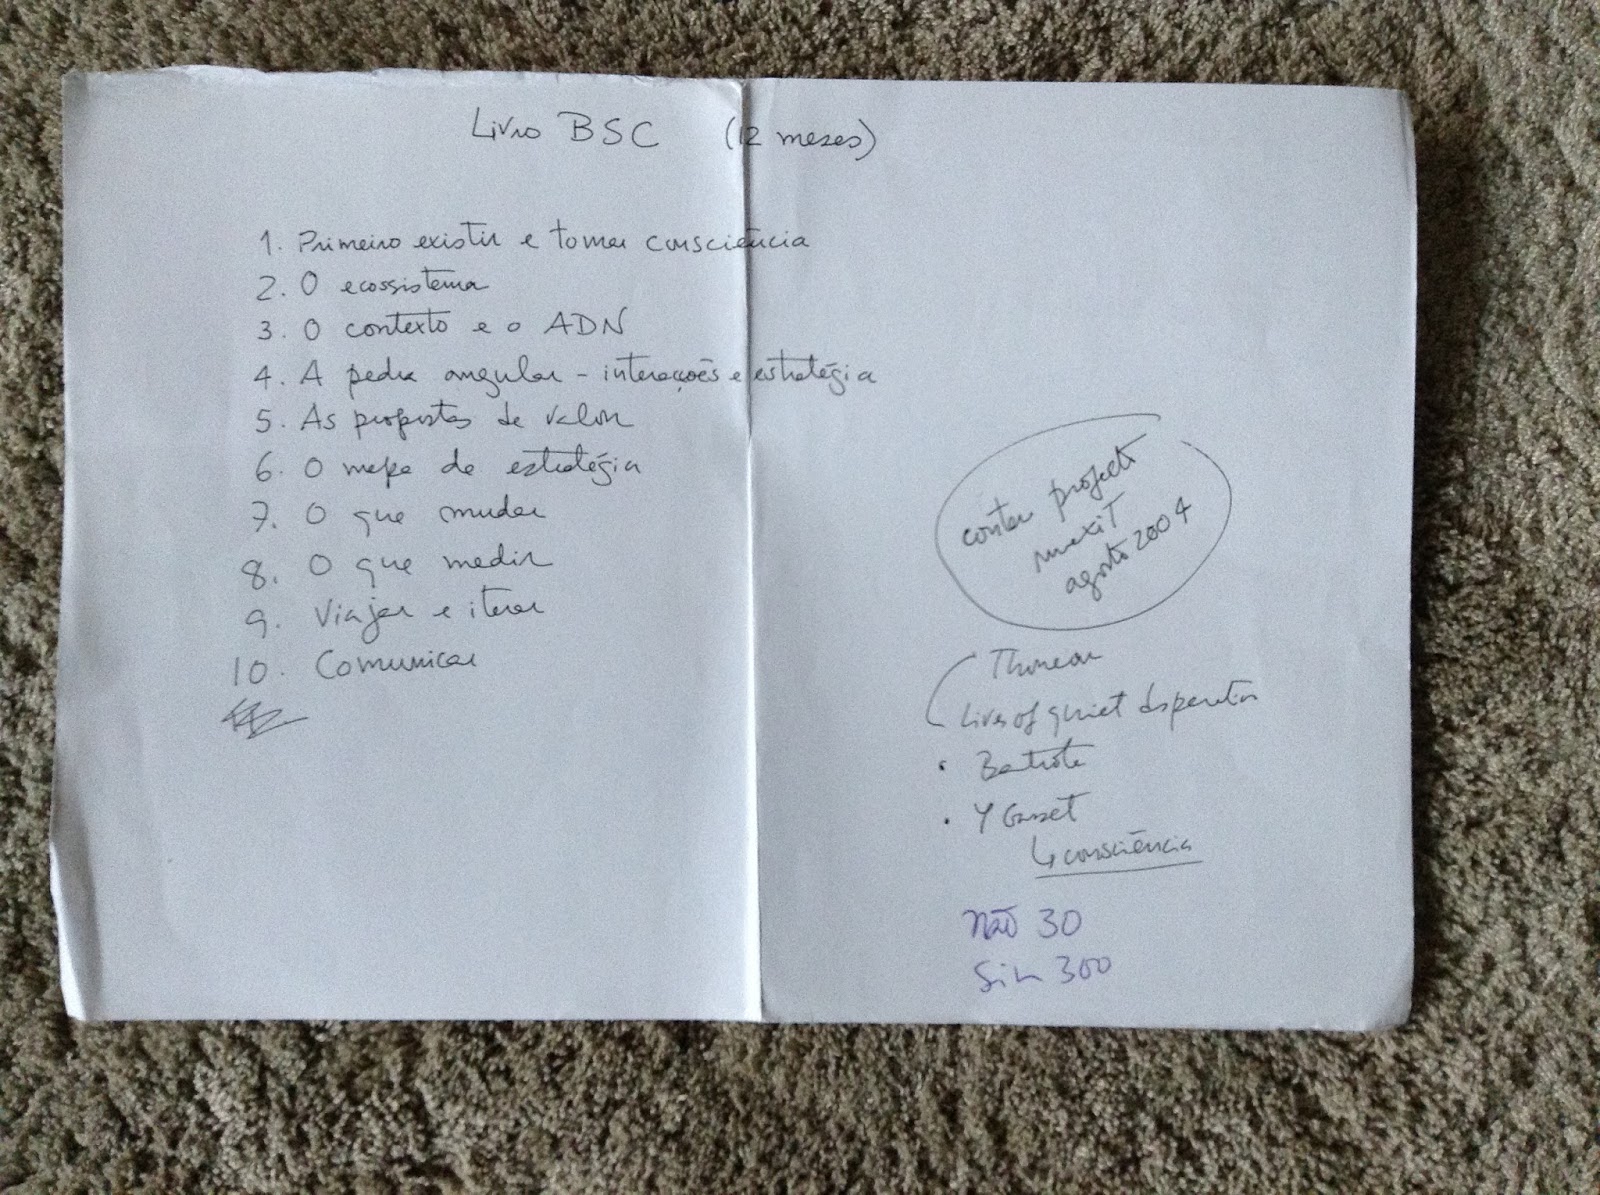 Livro BSC (12 meses)
1. Primeiro existir e tomar consciência
2. O ecossistema
3. O contexto e o ADN
4. A pedra angular - interacções e estratégia
5. As propostas de valor
6. O mapa da estratégia
7. O que mudar
8. O que medir
9. Viajar e iterar
10. Comunicar
contar projecto
agosto 2004
Thoreau
Lives of quiet desperation
Y Gasset
↳ consciência
Não 30
Sim 300